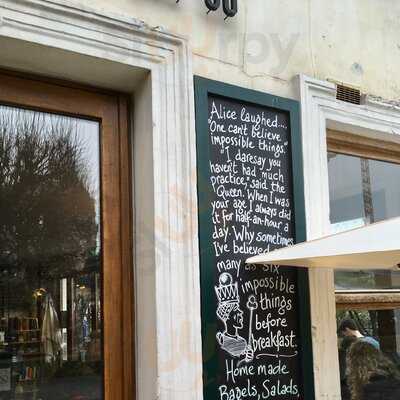 Alice laughed...
"One can't believe
impossible things"
"I daresay you
haven't had much
practice," said the
Queen. When I was
your age I always did
it for half-an-hour a
day. Why sometimes
I've believed
many as six
impossible
things
before
breakfast.
Homemade
Bagels, Salads,